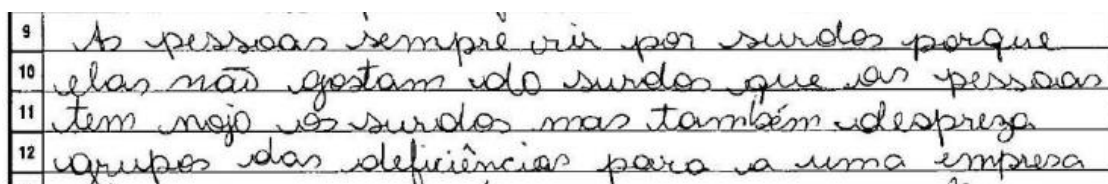 9 As pessoas sempre rir por surdos porque
10 elas não gostam do surdos que as pessoas
11 tem nojo os surdos mas também despreza
12 grupos das deficiências para a uma empresa